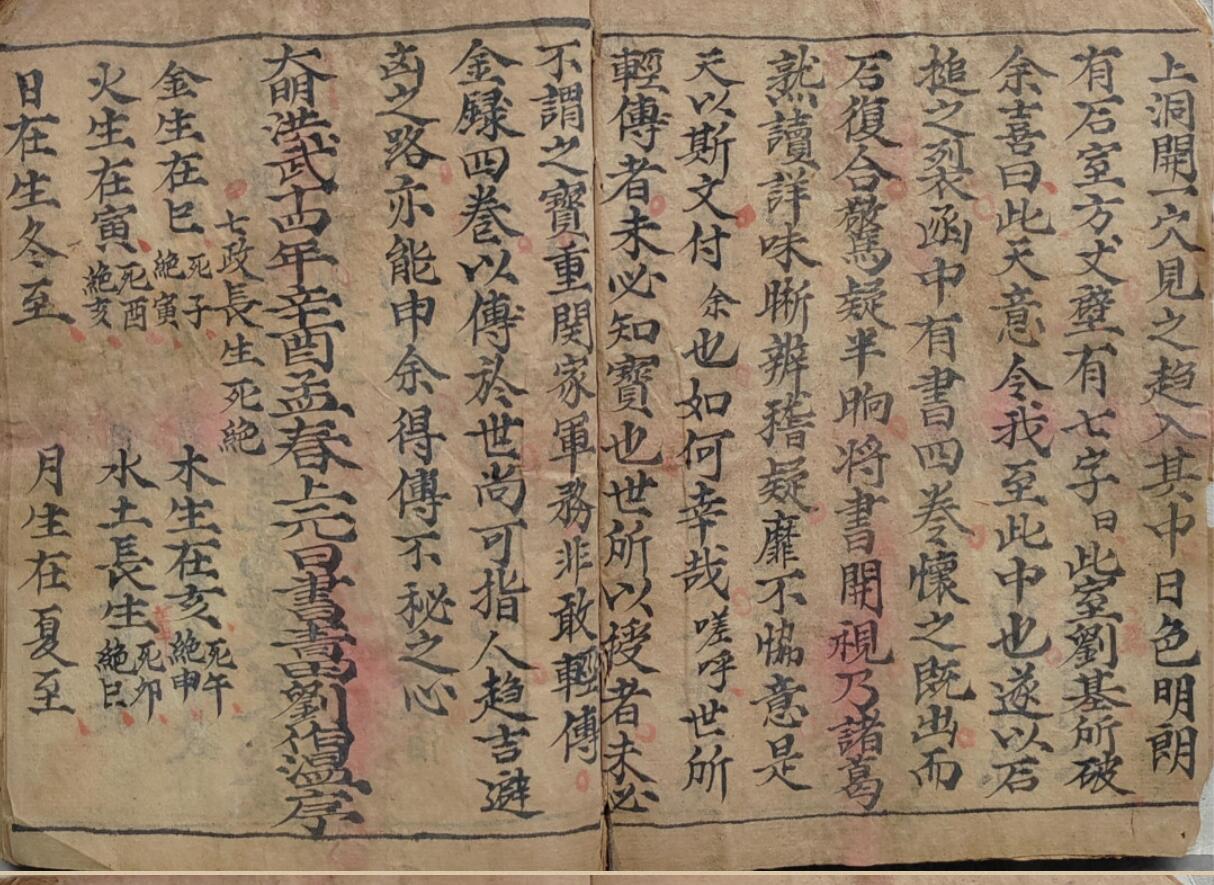 上洞開一穴見之趋入其中日色明朗
有石室方丈壁有七字曰此室劉基所破
余喜曰此天意令我至此中也遂以石
搥之裂衣函中有書四卷懷之既出而
石復合驚疑半晌将書開視乃諸葛
熟讀詳味晰辨稽疑靡不恊意是
天以斯文付余也如何幸哉嗟呼世所
輕傳者未必知寳也世所以授者未必
不謂之寳重関家軍務非敢輕傳
金録四巻以傳於世尚可指人趋吉避
凶之路亦能申余得傳不秘之心
大明洪武十四年辛酉孟春上元日書青田劉伯溫序
七政長生死絕
金生在巳 死子 絕寅 木生在亥 死午 絕申
火生在寅 死酉 絕亥 水土長生 死卯 絕巳
日在生冬至 月生在夏至